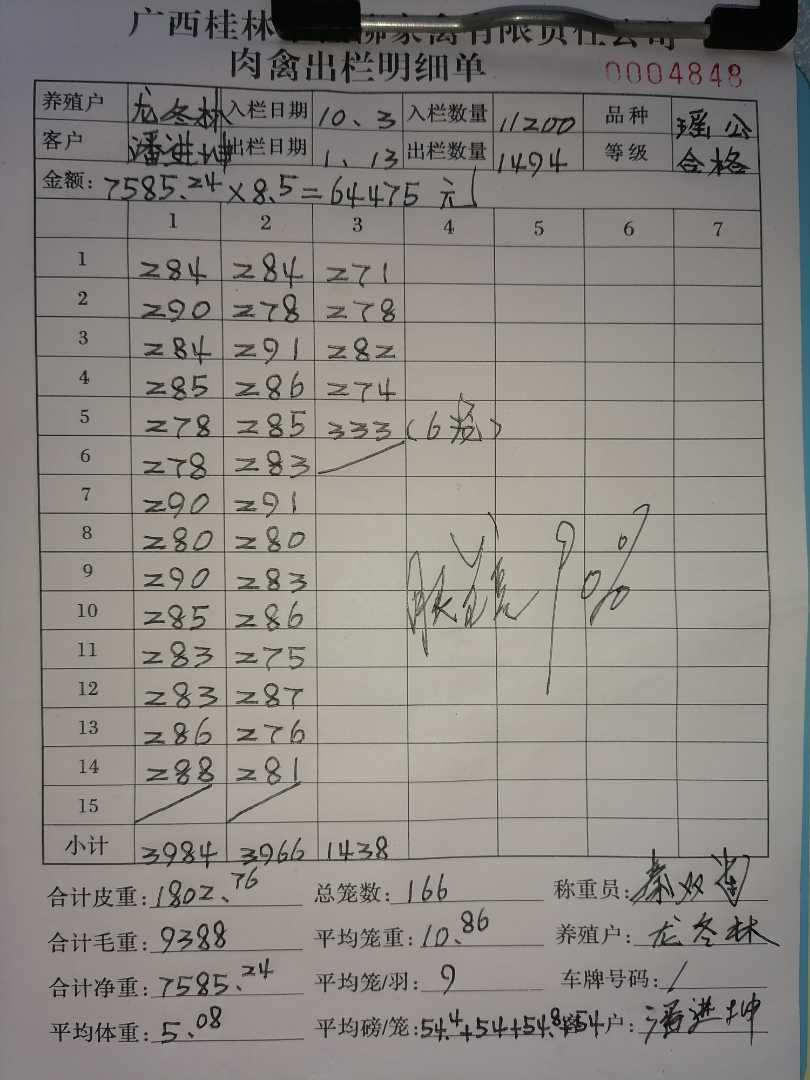 广西桂林 家禽有限责任公司
肉禽出栏明细单 0004848
养殖户 龙冬林 入栏日期 10.3 入栏数量 11200 品种 瑶公
客户 潘进坤 出栏日期 1.13 出栏数量 1494 等级 合格
金额: 7585.24×8.5=64475元
1 2 3 4 5 6 7
1 284 284 271
2 290 278 278
3 284 291 282
4 285 286 274
5 278 285 333(6笼)
6 278 283
7 290 291
8 280 280
9 290 283
10 285 286
11 283 275
12 283 287
13 286 276
14 288 281
15
小计 3984 3966 1438
9%
合计皮重: 1802.76 总笼数: 166 称重员: 秦双
合计毛重: 9388 平均笼重: 10.86 养殖户: 龙冬林
合计净重: 7585.24 平均笼/羽: 9 车牌号码: /
平均体重: 5.08 平均磅/笼: 54.4+54+54.8+54 户: 潘进坤